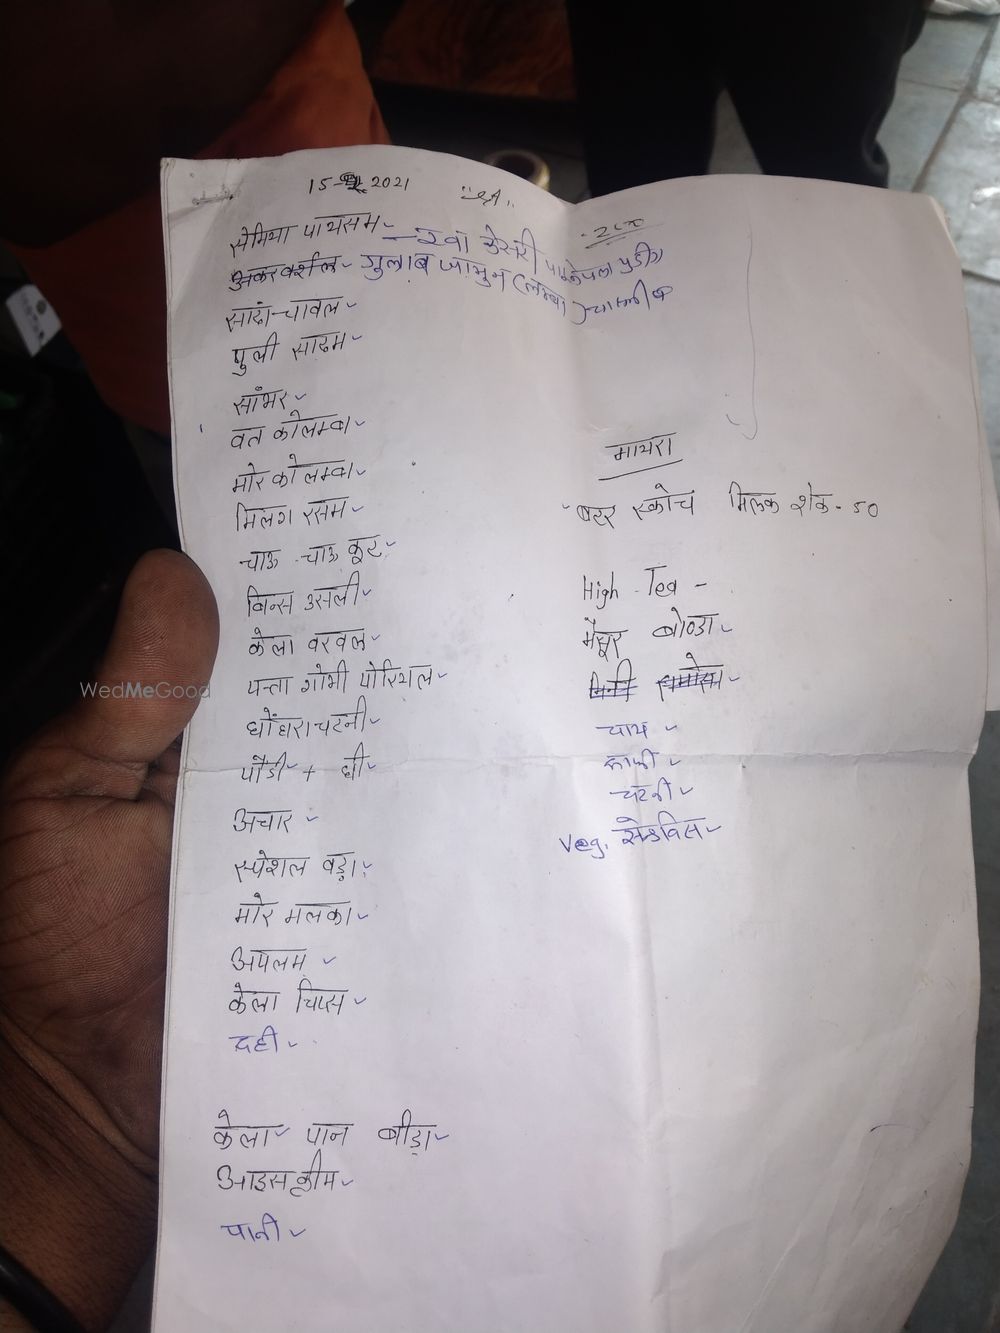 15- 2021
सेमिया पायसम - रवा केसरी
अकरवर्शल - गुलाब जामुन (लम्बा)
सादा चावल
पुली सादम
सांभर
वत कोलम्बा
मोर कोलम्बा
मिलग रसम
चाऊ चाऊ कूट
बिन्स उसली
केला वरवल
पत्ता गोभी पोरियल
चटनी
पौडी + घी
अचार
स्पेशल वड़ा
मोर मलका
अपलम
केला चिप्स
दही
केला पान बीड़ा
आइसक्रीम
पानी
मायरा
बटर स्कोच मिलक शेक - 50
High - Tea -
मैसूर बोण्डा
चाय
काफी
चटनी
Veg. सेन्डविस
WedMeGood